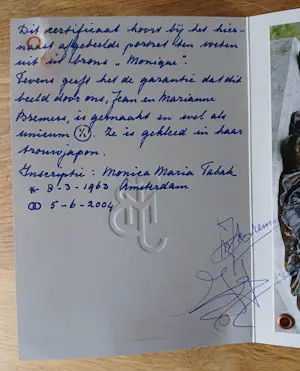 Dit certificaat hoort bij het hier-
naast afgebeelde portret ten voeten
uit in brons „Monique".
Tevens geeft het de garantie dat dit
beeld door ons, Jean en Marianne
Bremers, is gemaakt en wel als
unicum 1/1. Ze is gekleed in haar
trouwjapon.
Inscriptie: Monica Maria Tabak
* 8-3-1963 Amsterdam
5-6-2004